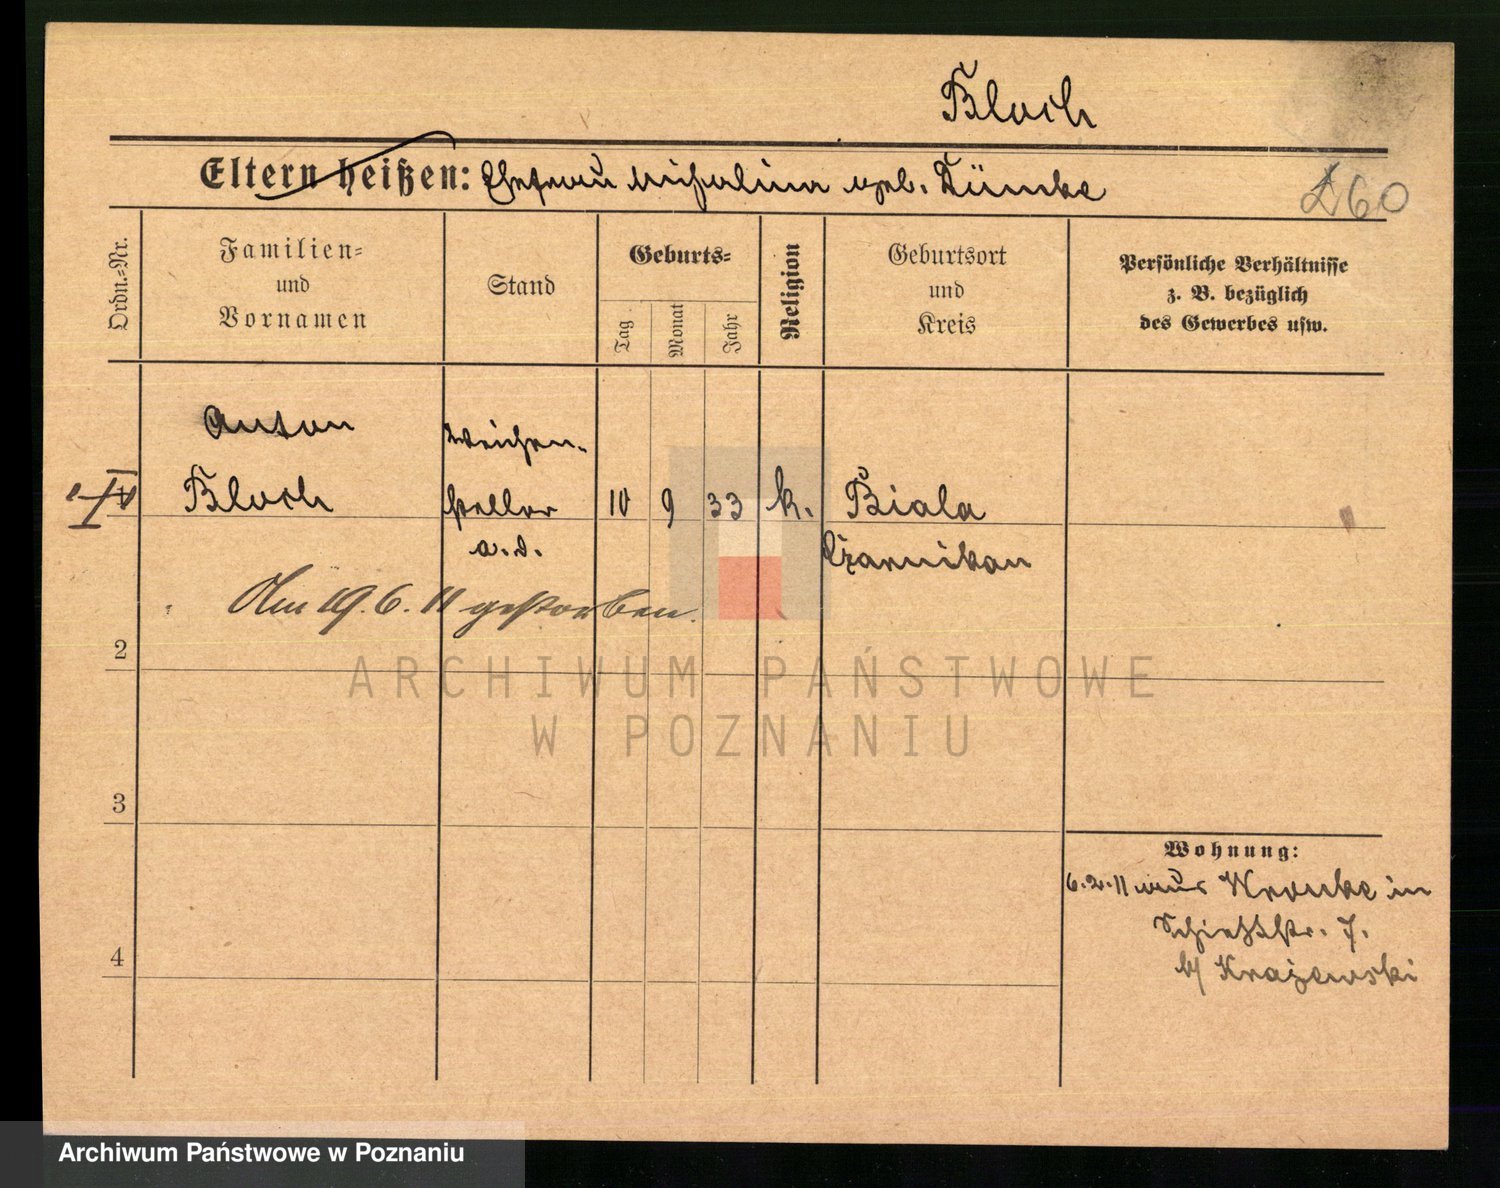 Bloch
Eltern heißen: Ehefrau Michalina geb. Dümke
260
Ordn.=Nr.
Familien=
und
Vornamen
Stand
Geburts=
Tag
Monat
Jahr
Religion
Geburtsort
und
Kreis
Persönliche Verhältnisse
z. B. bezüglich
des Gewerbes usw.
Anton
Bloch
Weichen-
steller
a. D.
10 9 33 k.
Biala
Czarnikau
Am 19.6.11 gestorben.
2
3
4
Wohnung:
6.2.11 aus Wronke in
Schießstr. 7.
b/ Krajewski
ARCHIWUM PAŃSTWOWE
W POZNANIU
Archiwum Państwowe w Poznaniu